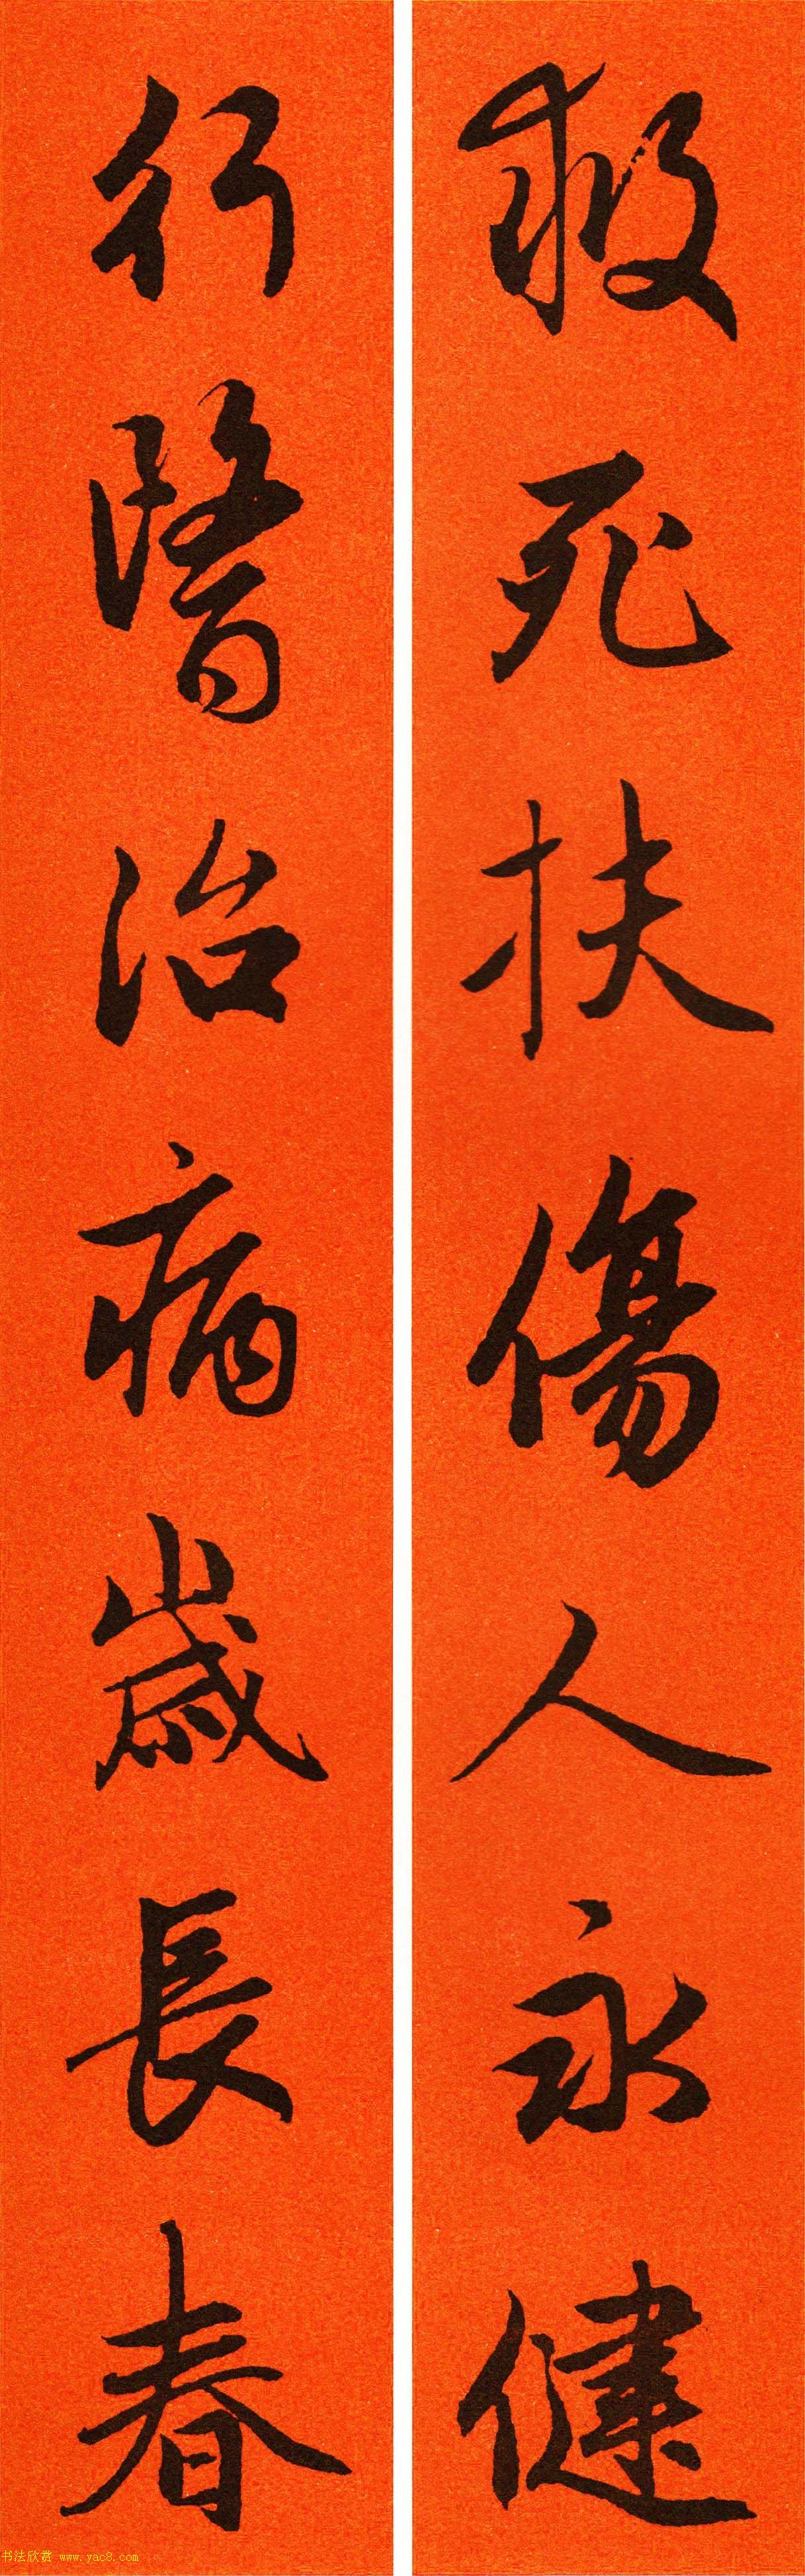 救死扶傷人永健
行醫治病歲長春
书法欣赏 www.yac8.com